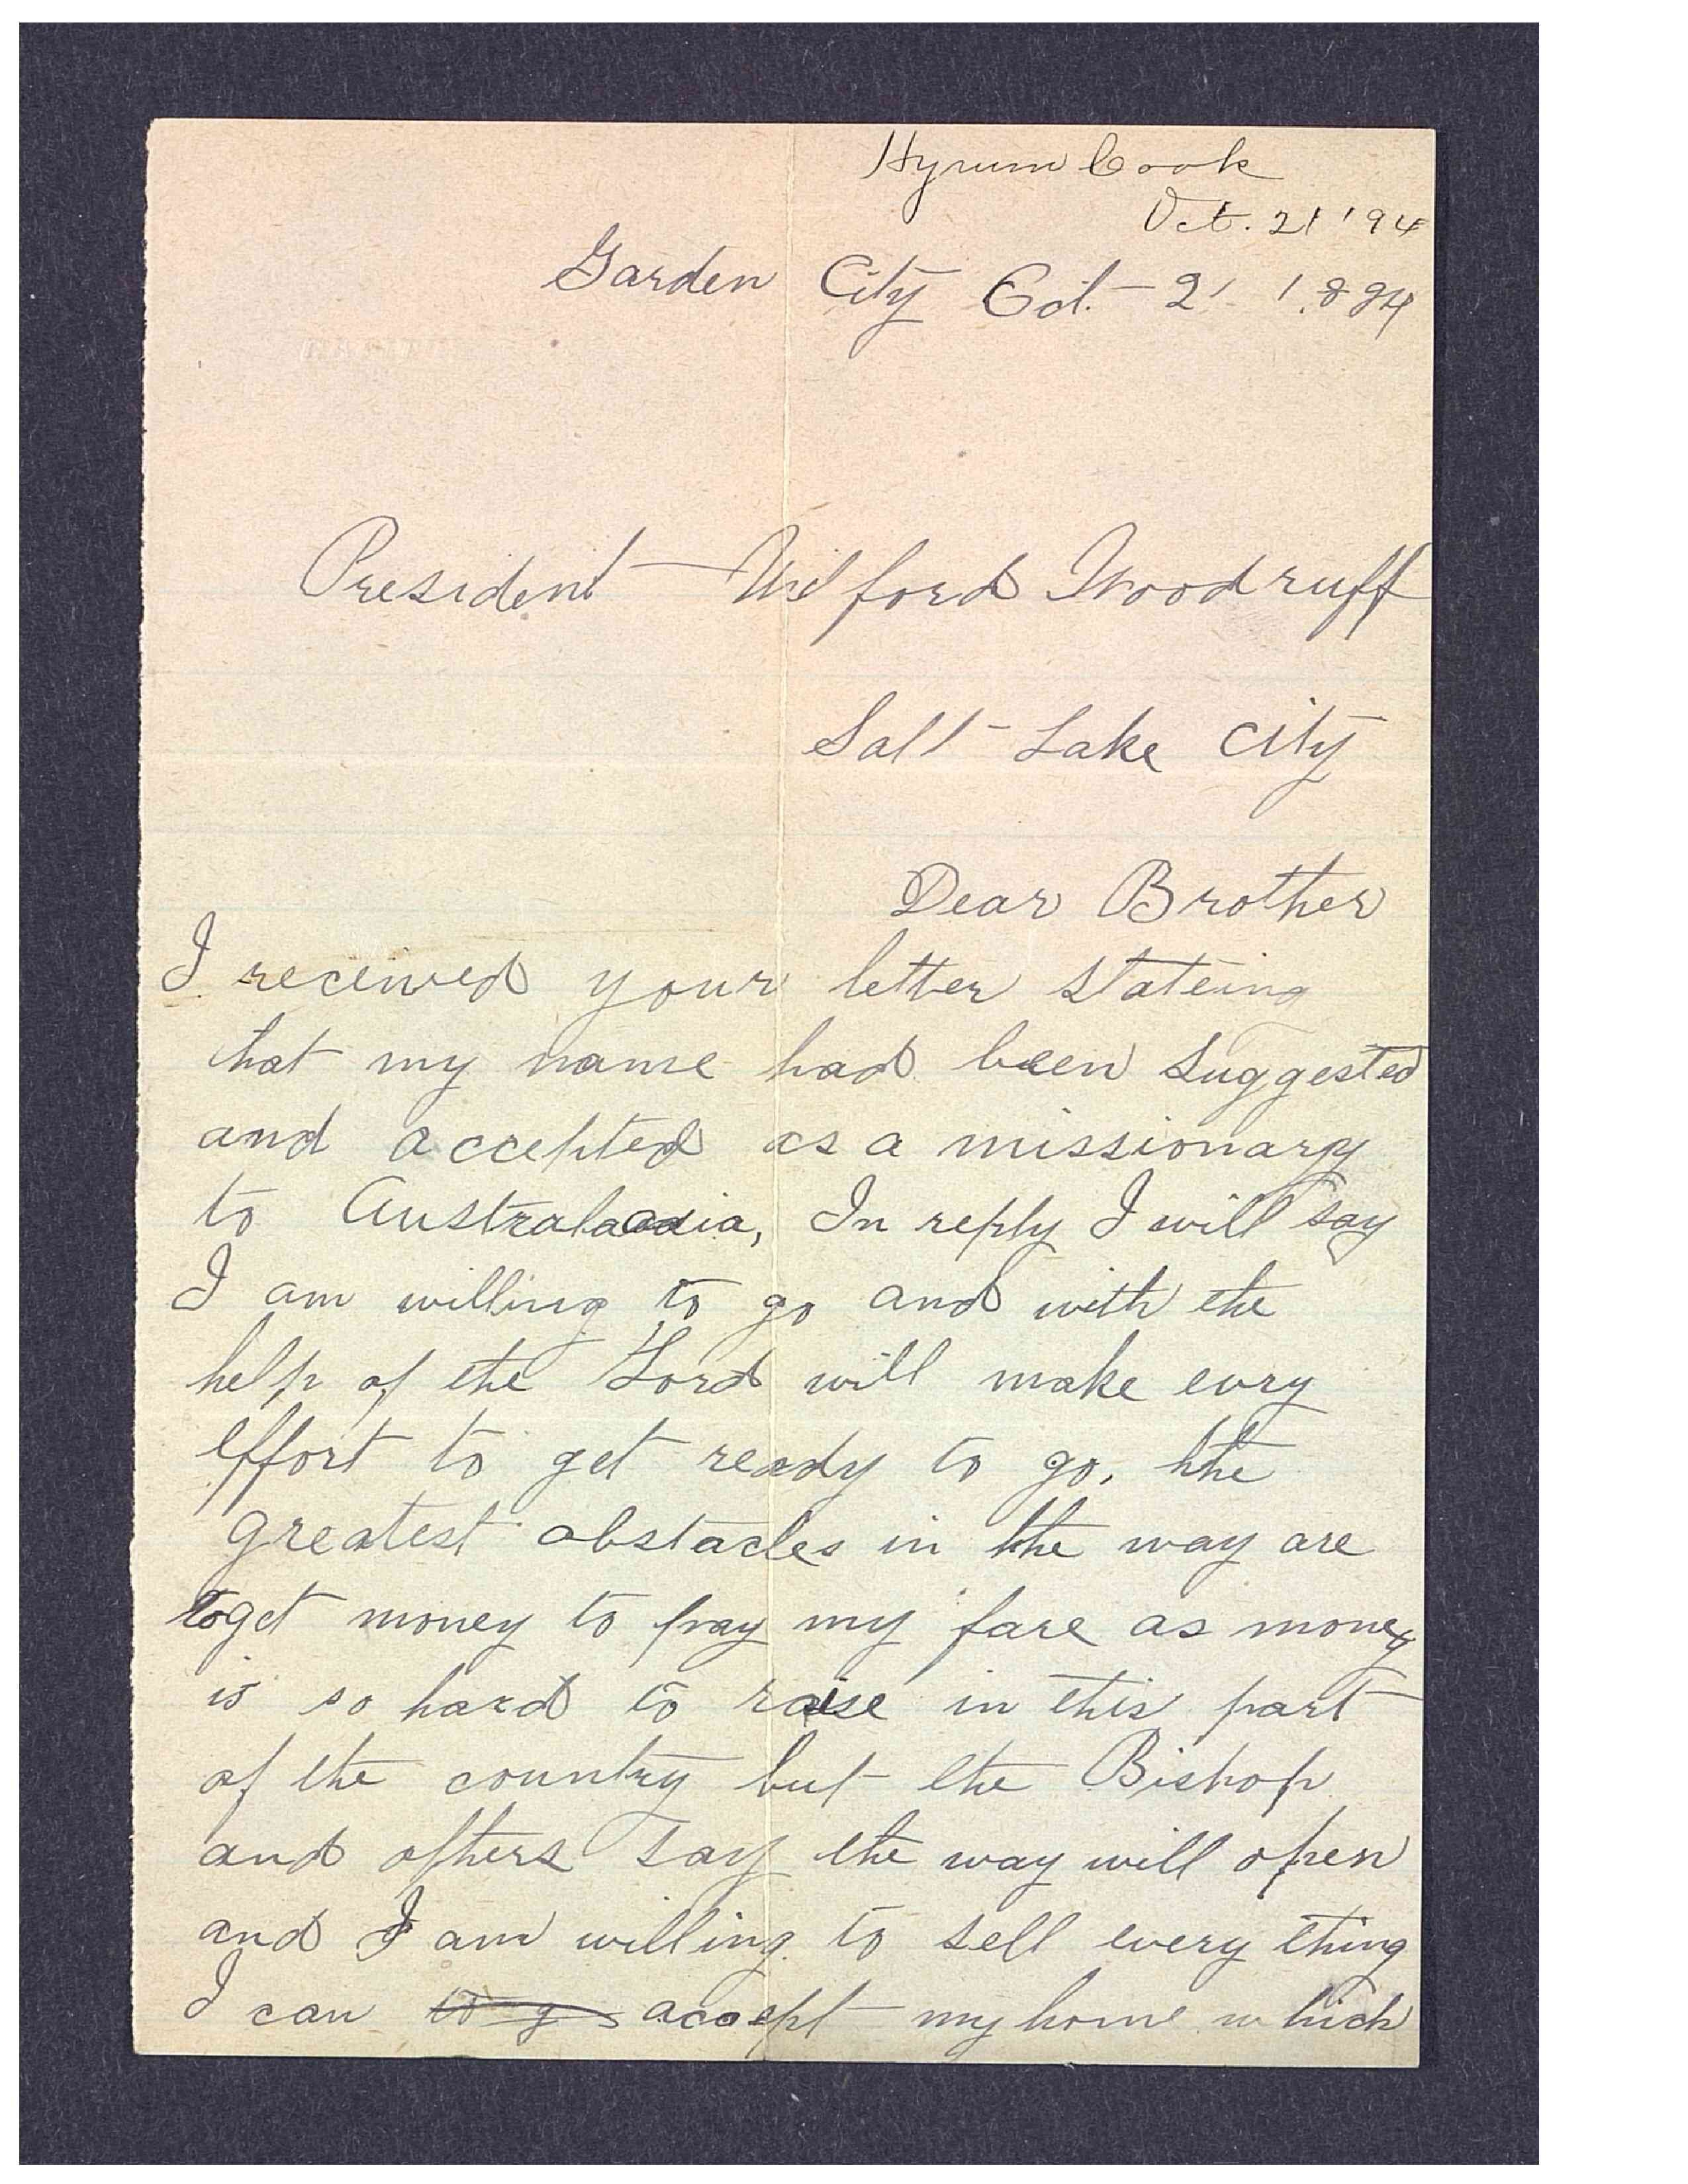 Hyrum Cook
Oct. 21 '94
Garden City Oct. 21 1894
President Wilford Woodruff
Salt Lake City
Dear Brother
I received your letter stateing
that my name had been suggested
and accepted as a missionary
to Australaasia, In reply I will say
I am willing to go and with the
help of the Lord will make evry
effort to get ready to go. the
greatest obstacles in the way are
to get money to pay my fare as money
is so hard to raise in this part
of the country but the Bishop
and others say the way will open
and I am willing to sell every thing
I can to g accept my home which